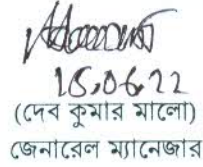 15.06.22
(দেব কুমার মালো)
জেনারেল ম্যানেজার